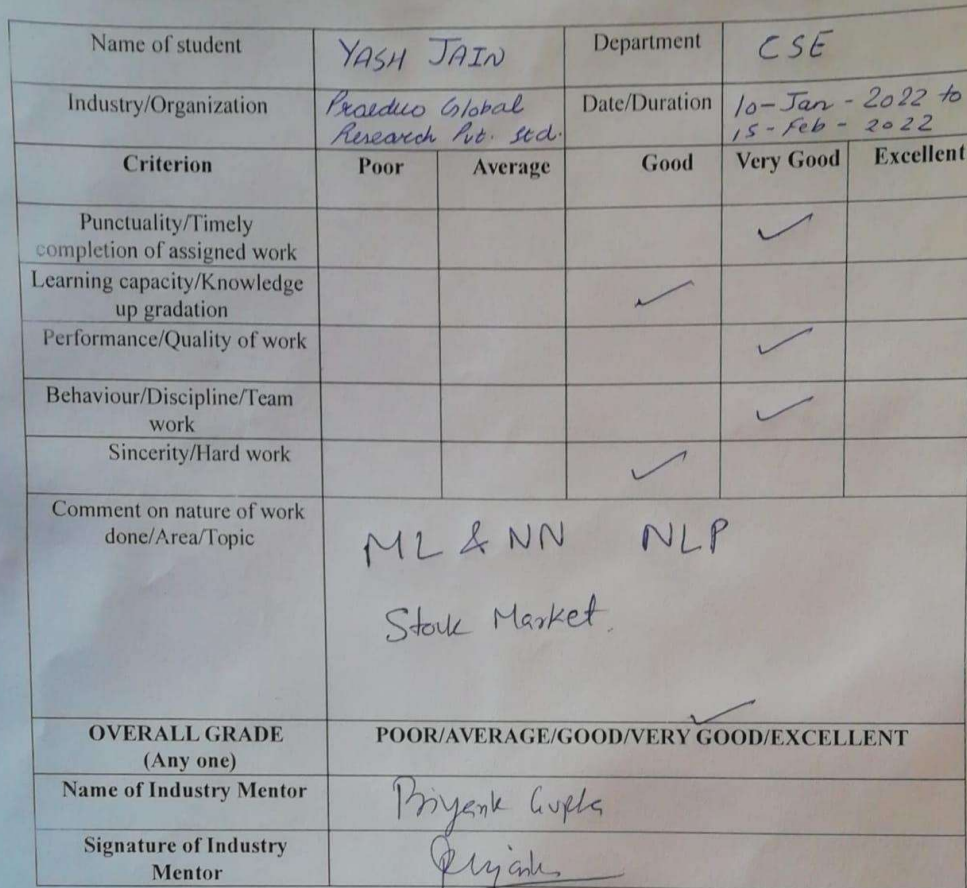 Name of student YASH JAIN Department CSE
Industry/Organization Praeduo Global Date/Duration 10-Jan-2022 to
Research Pvt. Ltd. 15-Feb-2022
Criterion Poor Average Good Very Good Excellent
Punctuality/Timely
completion of assigned work ✓
Learning capacity/Knowledge ✓
up gradation
Performance/Quality of work ✓
Behaviour/Discipline/Team ✓
work
Sincerity/Hard work ✓
Comment on nature of work
done/Area/Topic ML & NN NLP
Stock Market.
✓
OVERALL GRADE POOR/AVERAGE/GOOD/VERY GOOD/EXCELLENT
(Any one)
Name of Industry Mentor Priyank Gupta
Signature of Industry Priyank
Mentor